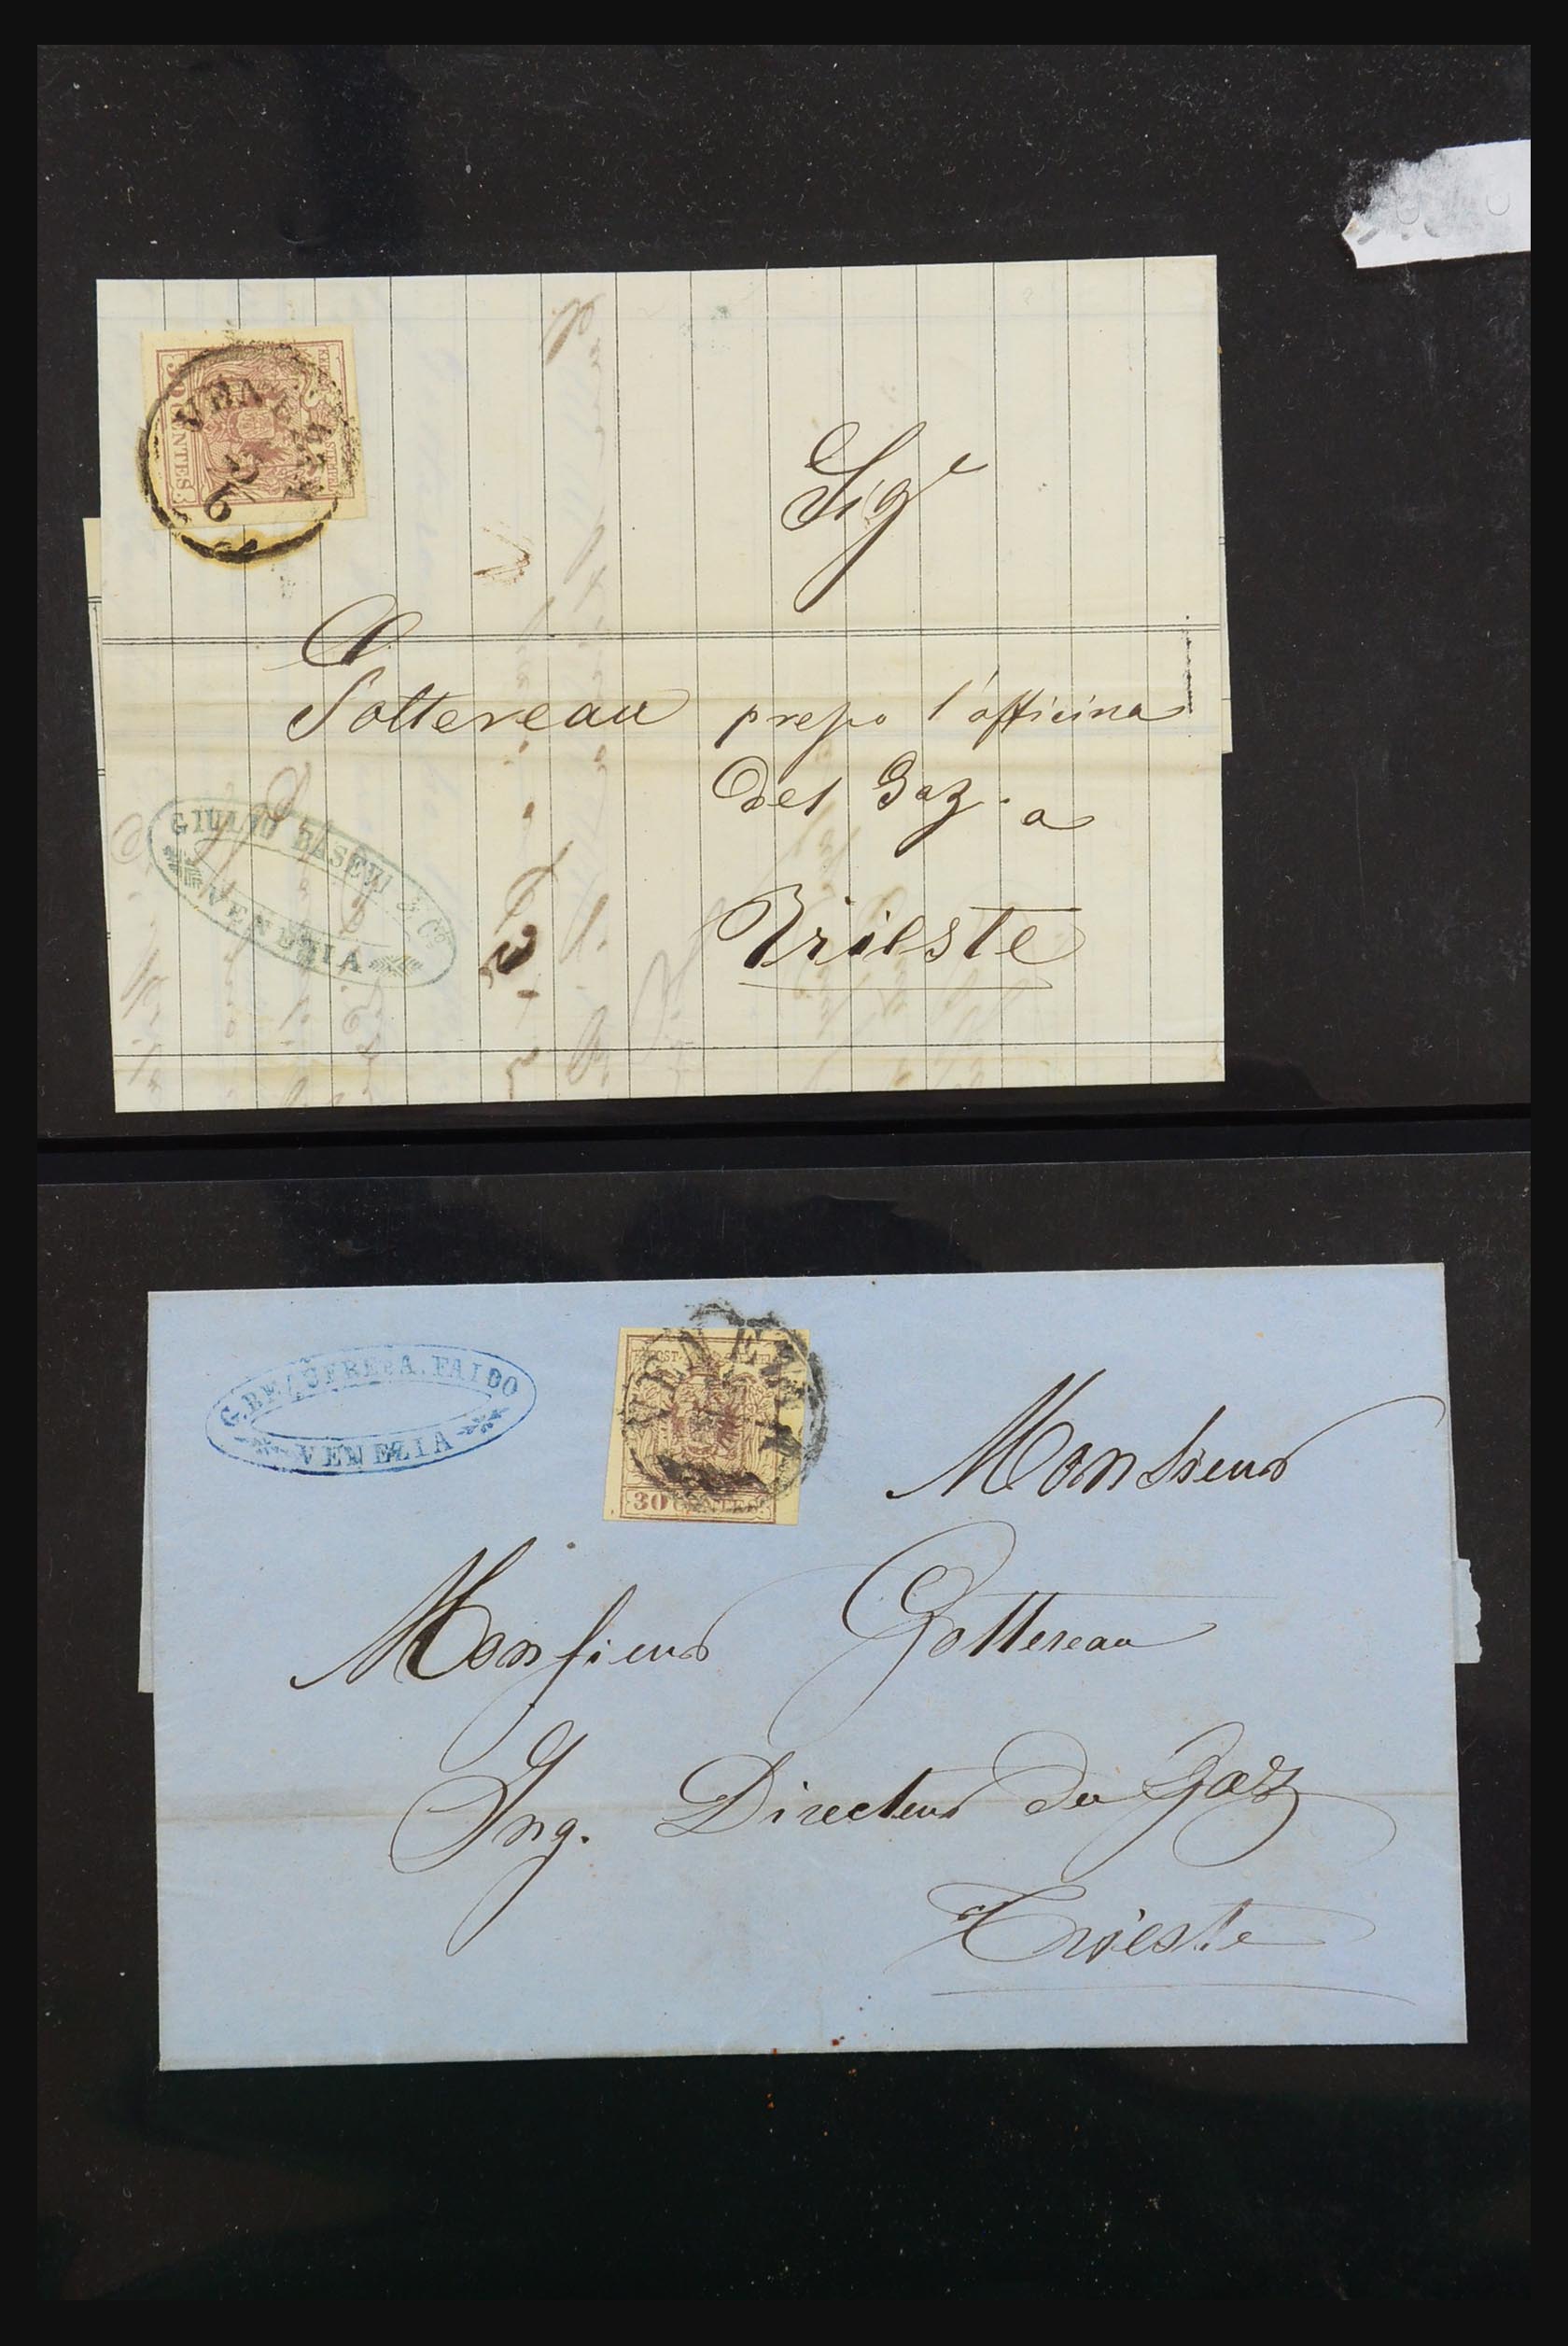 30 CENTES.
VENEZIA
Sig.e
Sottereau prepo l'officina
del Gaz. a
Trieste
GIULIO BASEVI & Co
VENEZIA
A. FAIDO
VENEZIA
VENEZIA
30 CENTES.
Monsieur
Monsieur Gottereau
Ing. Directeur du Gaz
Trieste